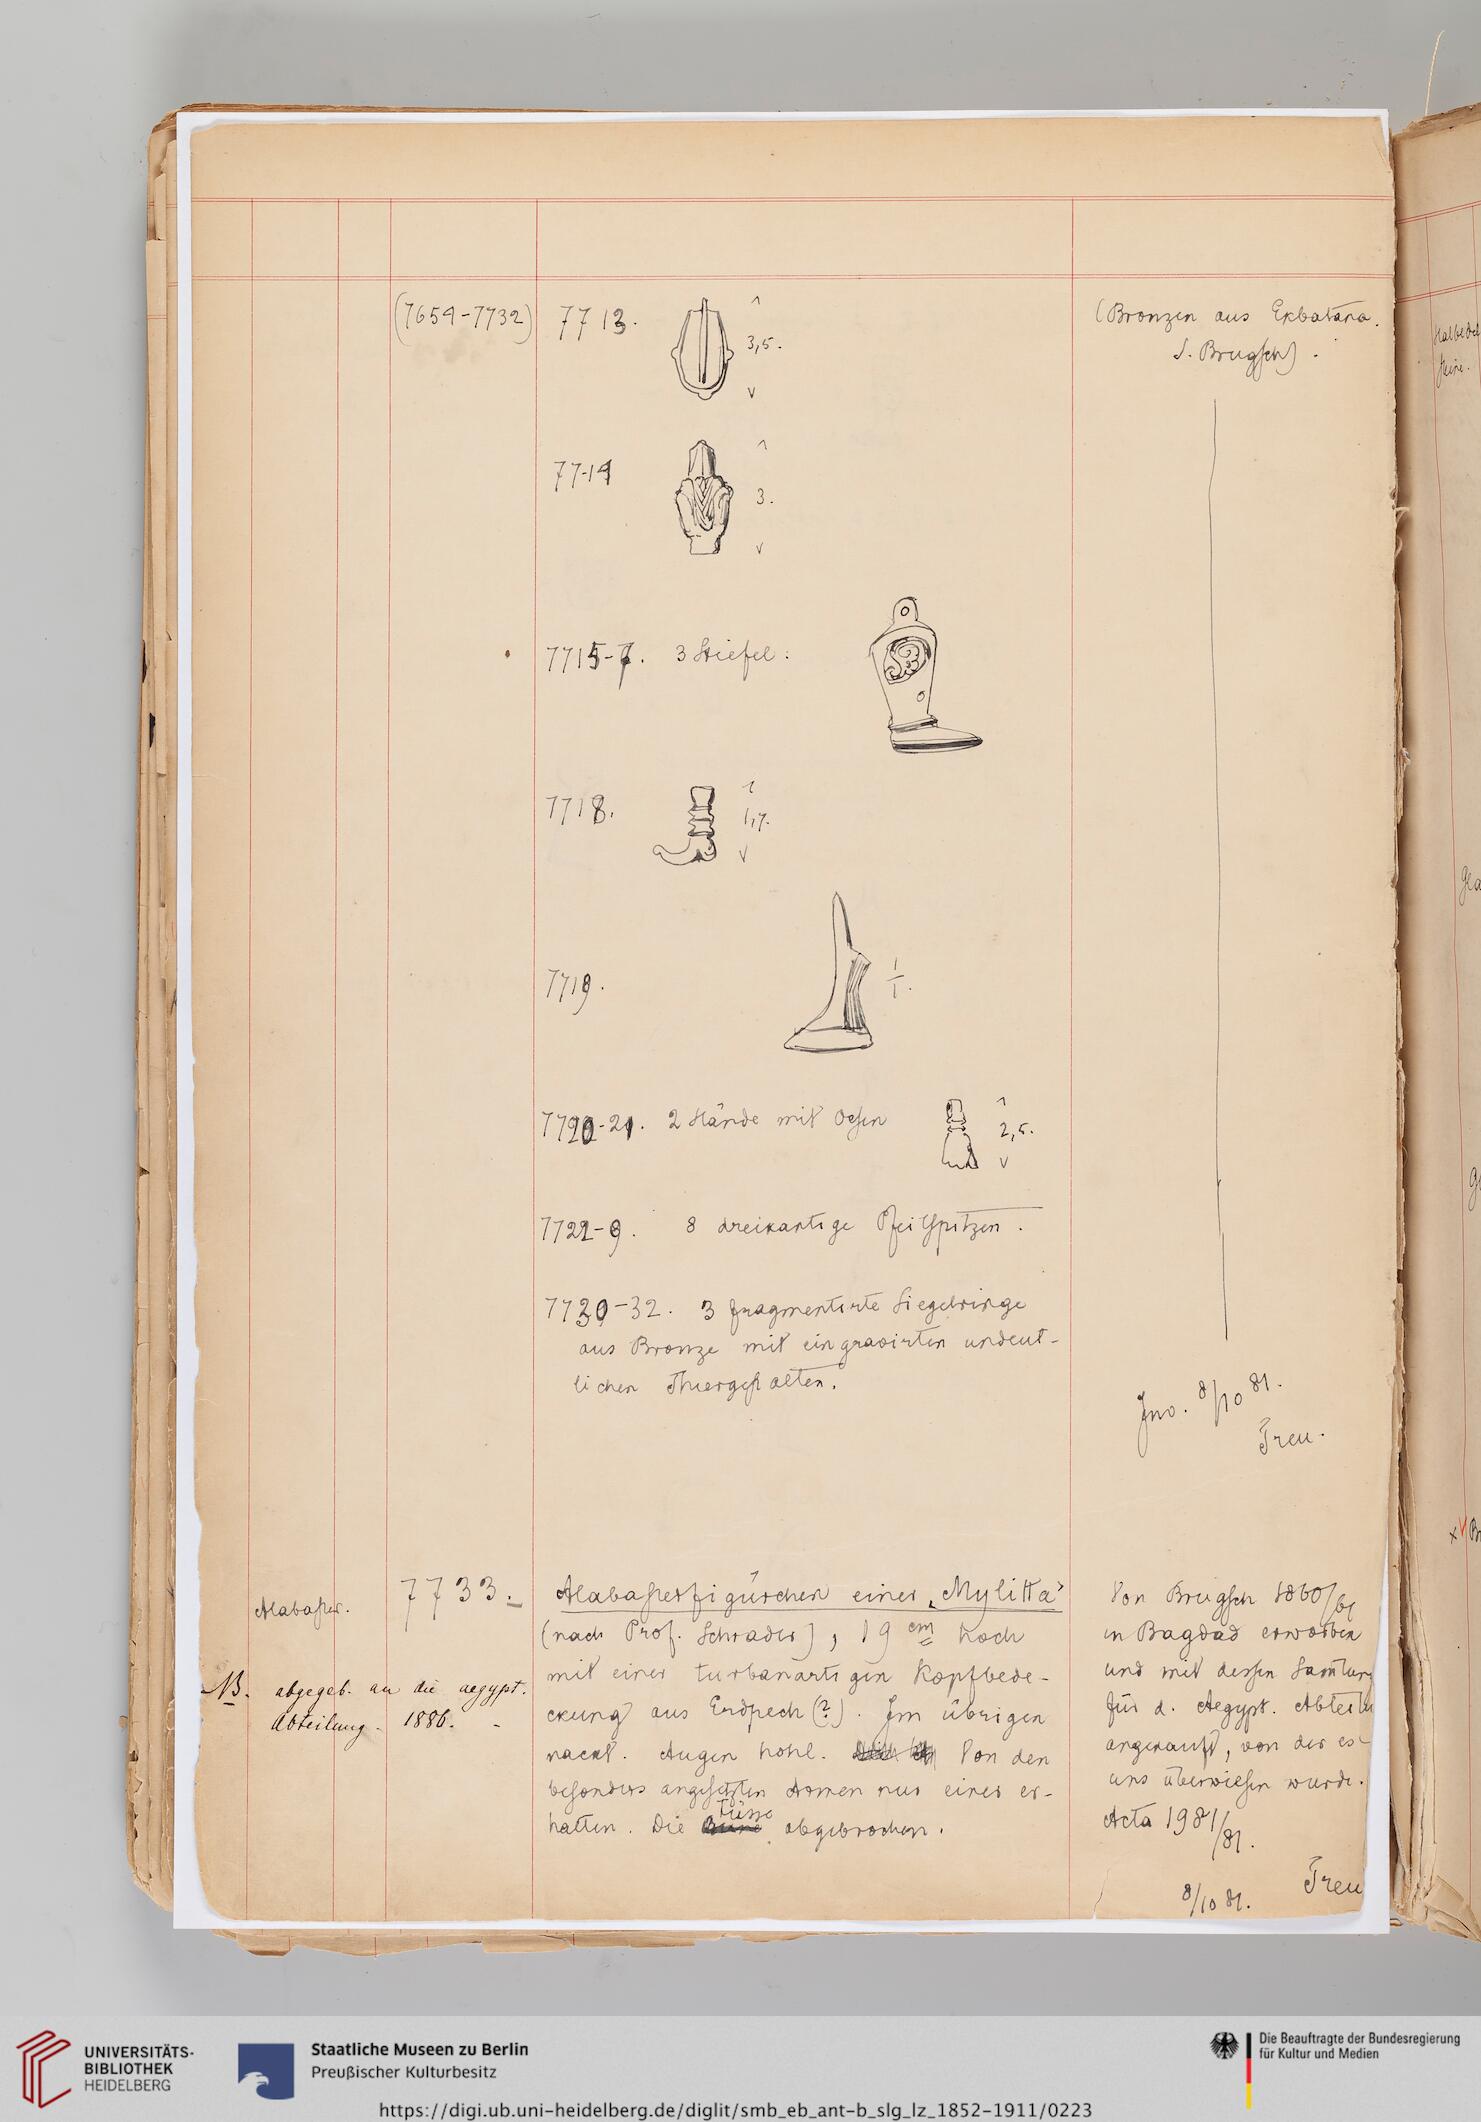 (7654-7732)
7713.
3,5.
(Bronzen aus Ekbatana.
S. Brugsch) .
7714
3.
7715-7. 3 Stiefel:
7718.
1,7.
7719.
1/1.
7720-21. 2 Hände mit Oesen
2,5.
7722-9. 8 dreikantige Pfeilspitzen.
7730-32. 3 fragmentirte Siegelringe
aus Bronze mit eingravirten undeut-
lichen Thiergestalten.
Inv. 8/10 81.
Treu.
Alabaster.
7733.
Alabasterfigürchen einer „Mylitta"
(nach Prof. Schrader), 19 cm hoch
mit einer turbanartigen Kopfbede-
ckung aus Erdpech (?). Im übrigen
nackt. Augen hohl. Von den
besonders angesetzten Armen nur einer er-
halten. Die Füsse abgebrochen.
NB. abgegeb. an die aegypt.
Abteilung. 1886.
Von Brugsch 1860/61
in Bagdad erworben
und mit dessen Samlung
für d. Aegypt. Abteilu
angekauft, von der es
uns überwiesen wurde.
Acta 1981/81.
8/10 81.
Treu
UNIVERSITÄTS-
BIBLIOTHEK
HEIDELBERG
Staatliche Museen zu Berlin
Preußischer Kulturbesitz
Die Beauftragte der Bundesregierung
für Kultur und Medien
https://digi.ub.uni-heidelberg.de/diglit/smb_eb_ant-b_slg_lz_1852-1911/0223